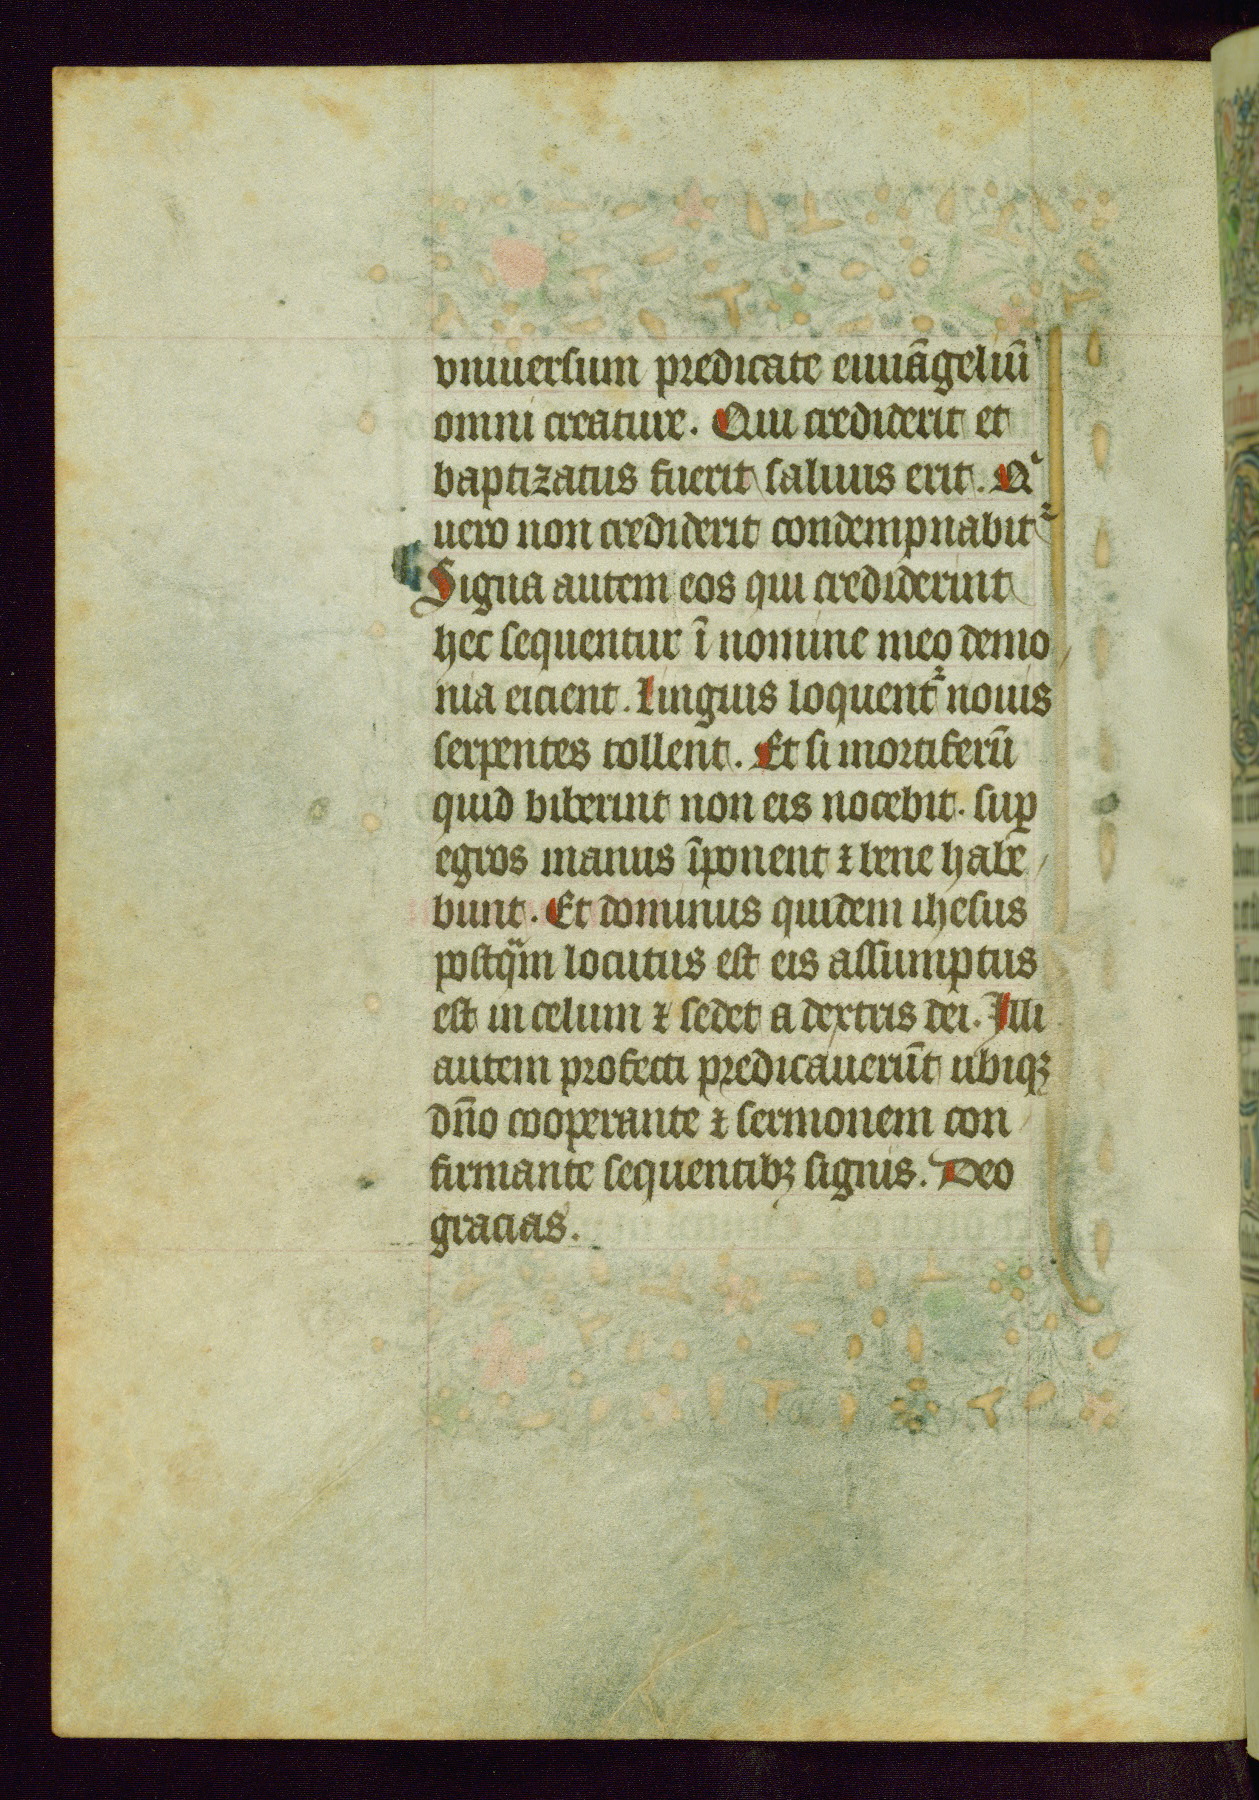 vniuersum predicate euuãgeliũ
omni creature. Qui crediderit et
baptizatus fuerit saluus erit. Qͥ
uero non crediderit condempnabit᷑
Signa autem eos qui crediderint
hec sequentur ĩ nomine meo demo
nia eicient. linguis loquent᷑ nouis
serpentes tollent. Et si mortiferũ
quid biberint non eis nocebit. suꝑ
egros manus ĩponent ⁊ bene habe
bunt. Et dominus quidem ihesus
postqᷓm locutus est eis assumptus
est in celum ⁊ sedet a dextris dei. Illi
autem profecti predicauerũt ubiqꝫ
dño cooperante ⁊ sermonem con
firmante sequentibꝫ signis. Deo
gracias.